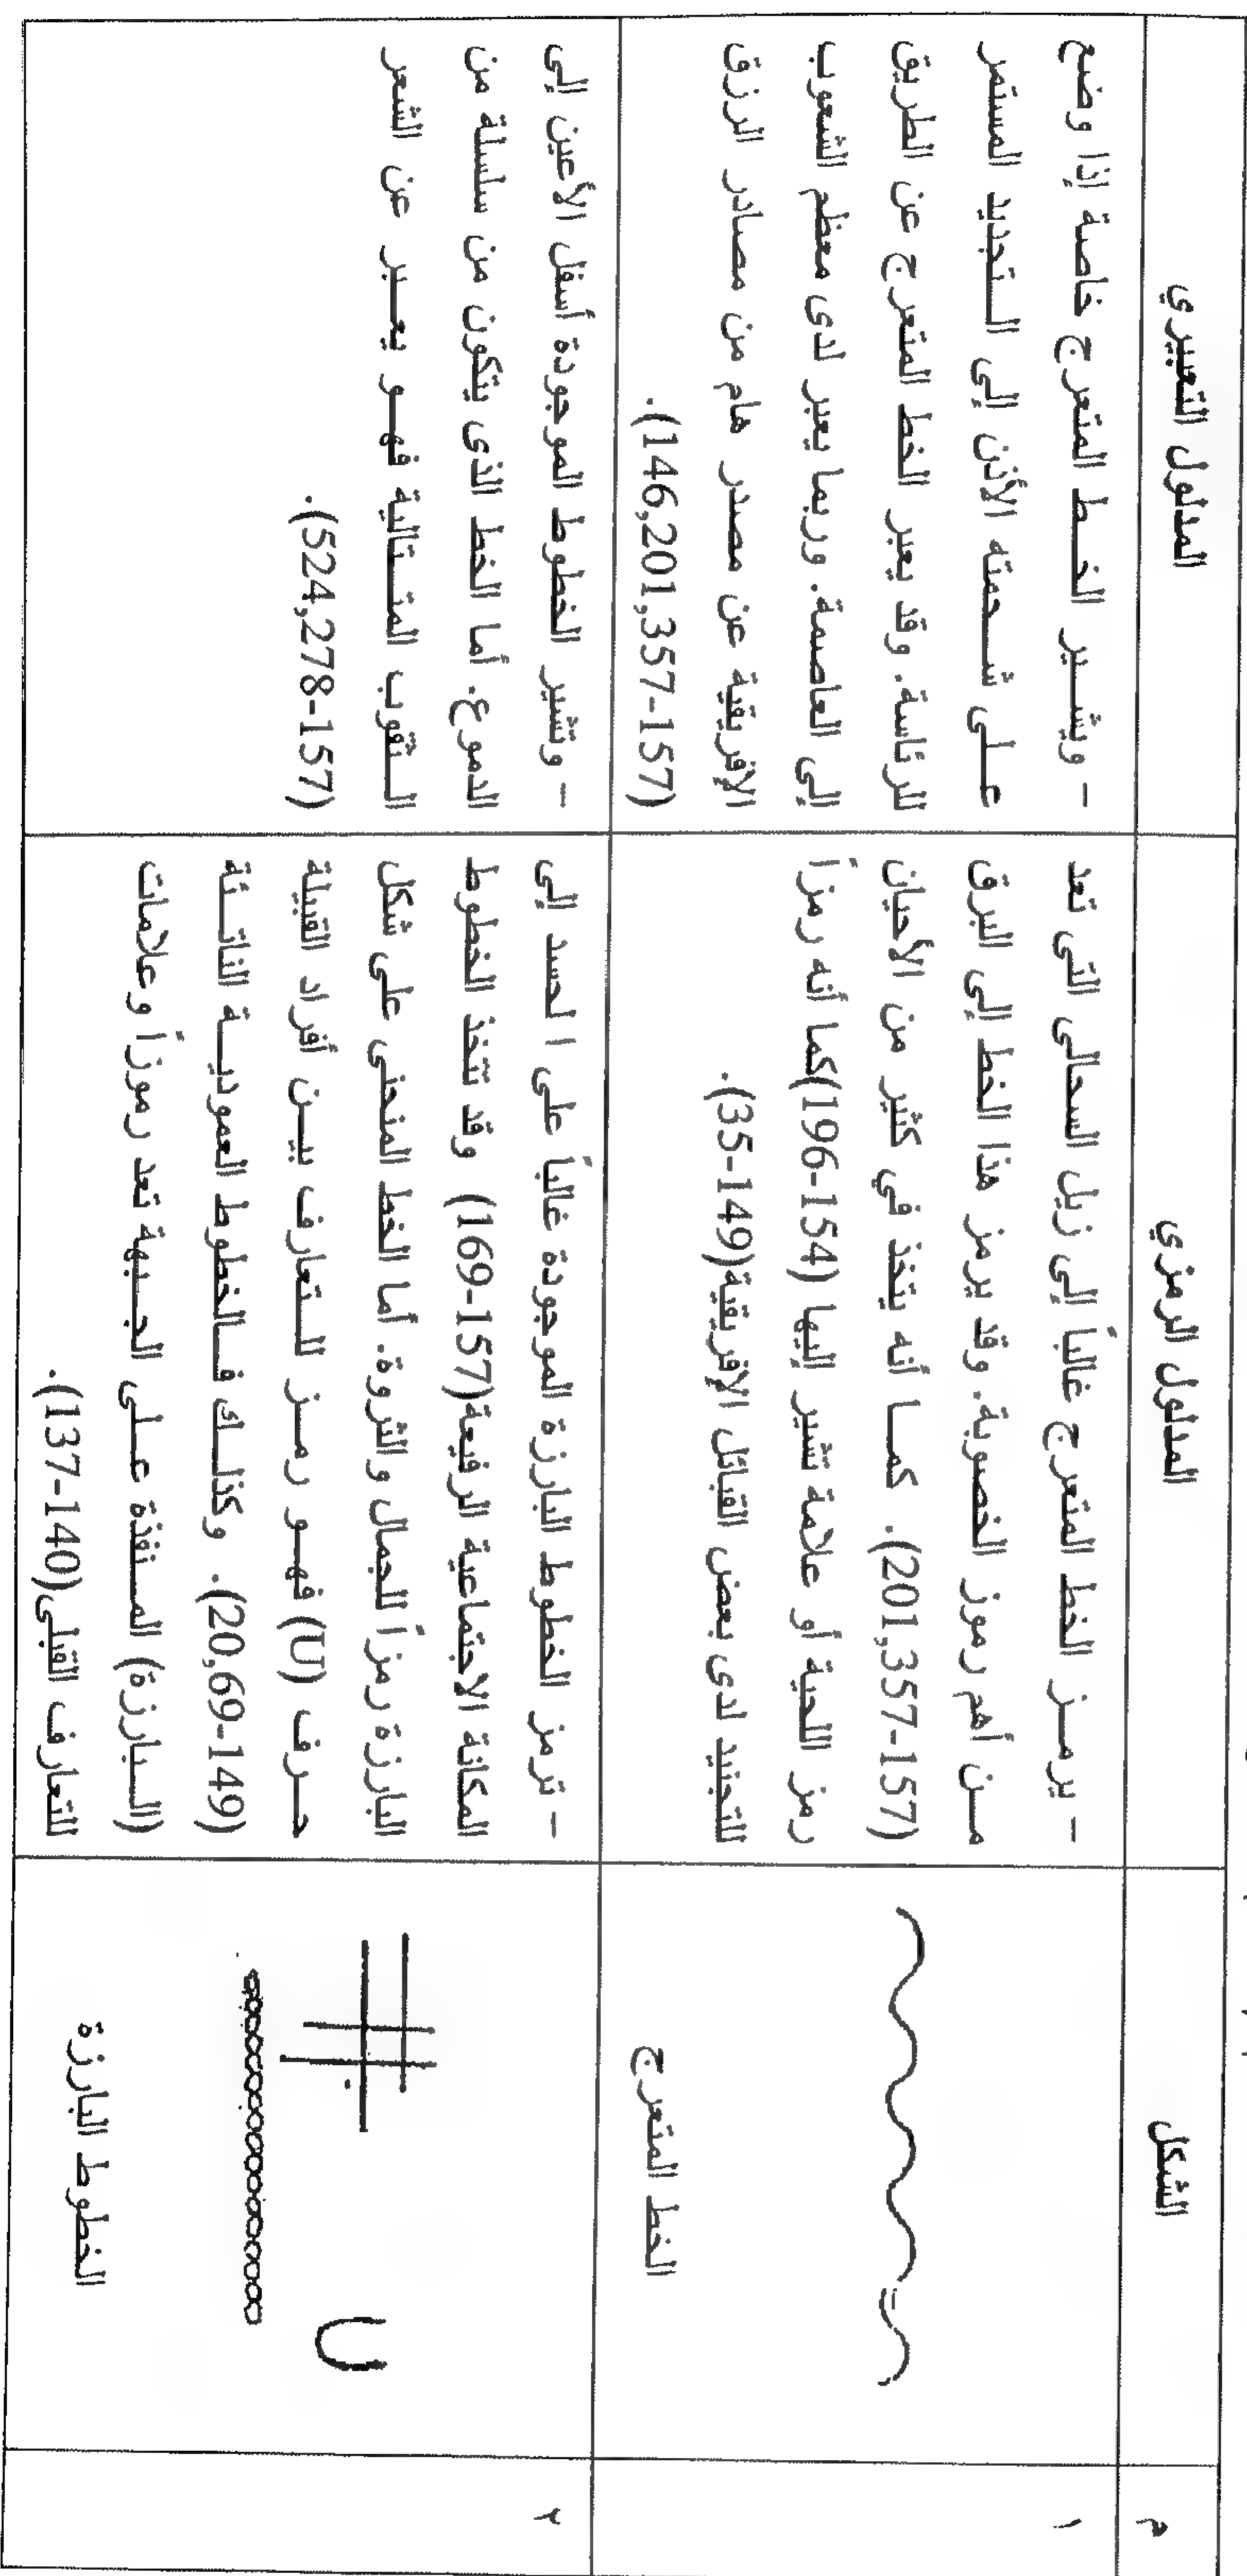 م
الشكل
المدلول الرمزي
المدلول التعبيري
١
الخط المتعرج
- يرمـــز الخط المتعرج غالباً إلى زيل السحالى التى تعد
مـــن أهم رموز الخصوبة. وقد يرمز هذا الخط إلى البرق
(201,357-157). كمـــا أنه يتخذ في كثير من الأحيان
رمز اللحية أو علامة تشير إليها (196-154)كما أنه رمزاً
للتجنيد لدى بعض القبائل الإفريقية(35-149).
- ويشـــير الخـــط المتعرج خاصة إذا وضع
عـــلى شـــحمته الأذن إلى الـــتجديد المستمر
للرئاسة. وقد يعبر الخط المتعرج عن الطريق
إلى العاصمة. وربما يعبر لدى معظم الشعوب
الإفريقية عن مصدر هام من مصادر الرزق
(146,201,357-157).
٢
U
الخطوط البارزة
- ترمز الخطوط البارزة الموجودة غالباً على ا لحسد إلى
المكانة الاجتماعية الرفيعة(169-157) وقد تتخذ الخطوط
البارزة رمزاً للجمال والثروة. أما الخط المنحنى على شكل
حـــرف (U) فهـــو رمـــز للـــتعارف بيـــن أفراد القبيلة
(20,69-149). وكذلـــك فـــالخطوط العموديـــة الناتـــئة
(الـــبارزة) المـــنفذة عـــلى الجـــبهة تعد رموزاً وعلامات
للتعارف القبلى(137-140).
- وتشير الخطوط الموجودة أسفل الأعين إلى
الدموع. أما الخط الذى يتكون من سلسلة من
الـــثقوب المتـــتالية فهـــو يعـــبر عن الشعر
(524,278-157).